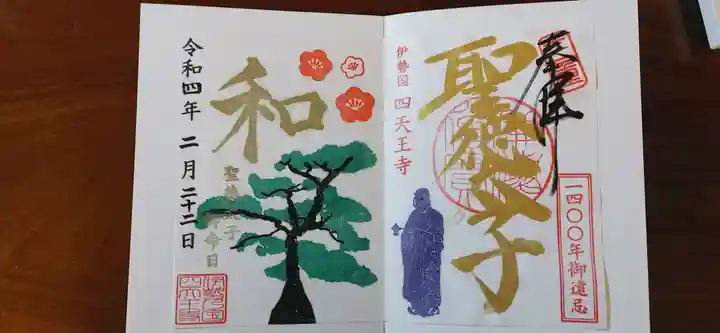 奉拝
聖徳太子
一四〇〇年御遠忌
伊勢国 四天王寺
和
聖徳太子
御命日
令和四年 二月二十二日